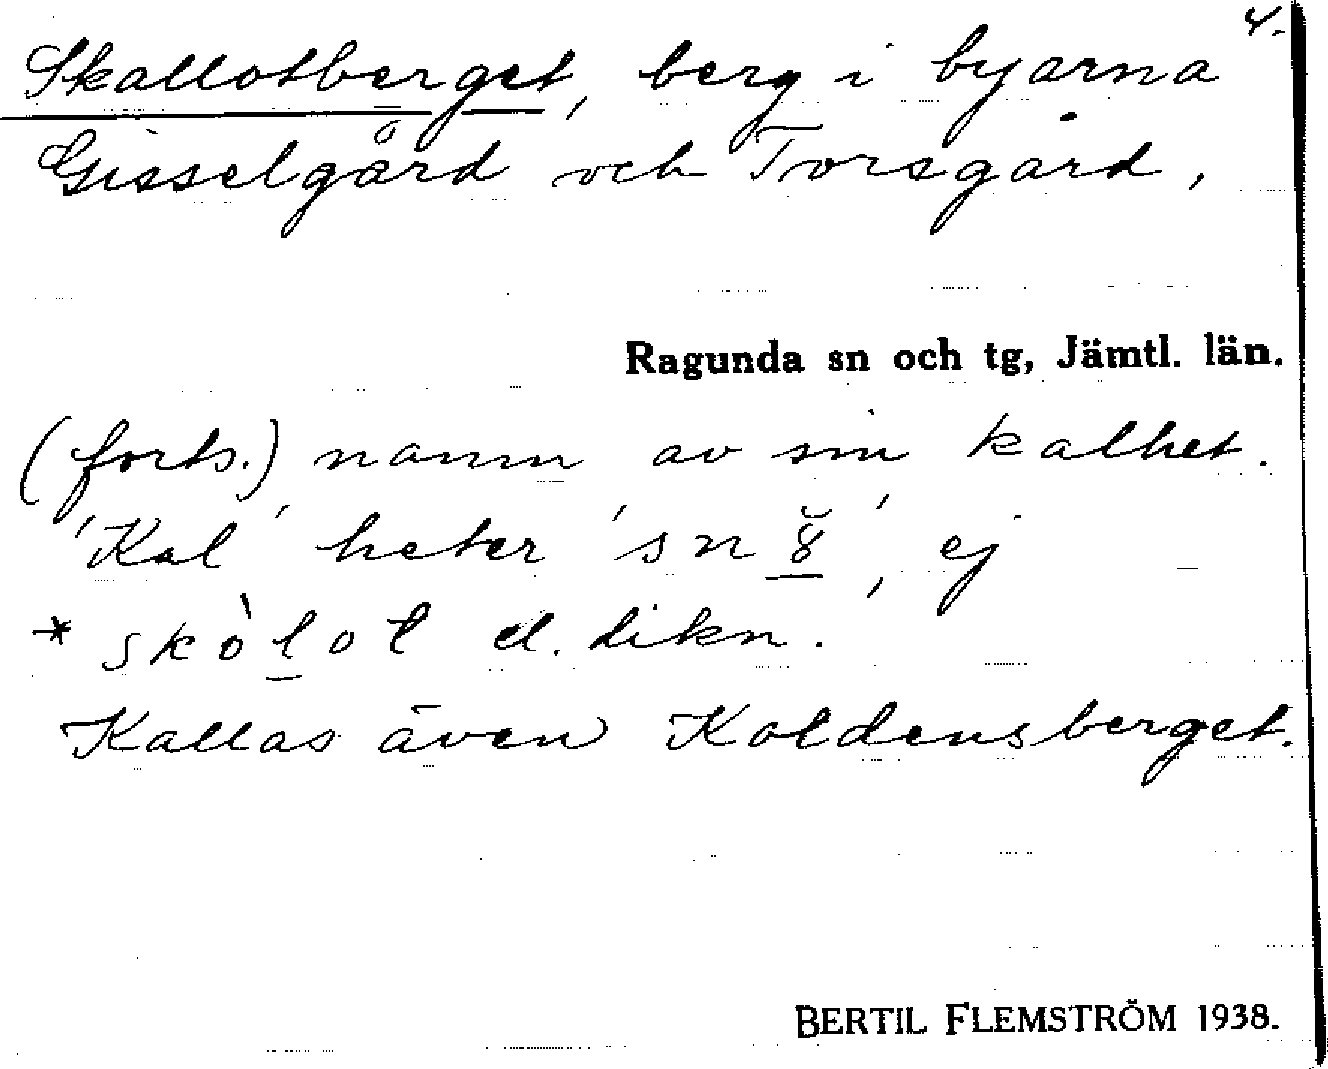 4.
Skallotberget, berg i byarna
Gisselgård och Torsgård,
Ragunda sn och tg, Jämtl. län.
(forts.) namn av sin kalhet.
'Kal' heter 'sn ', ej
* skòlot el. likn.
Kallas även Koldensberget.
BERTIL FLEMSTRÖM 1938.